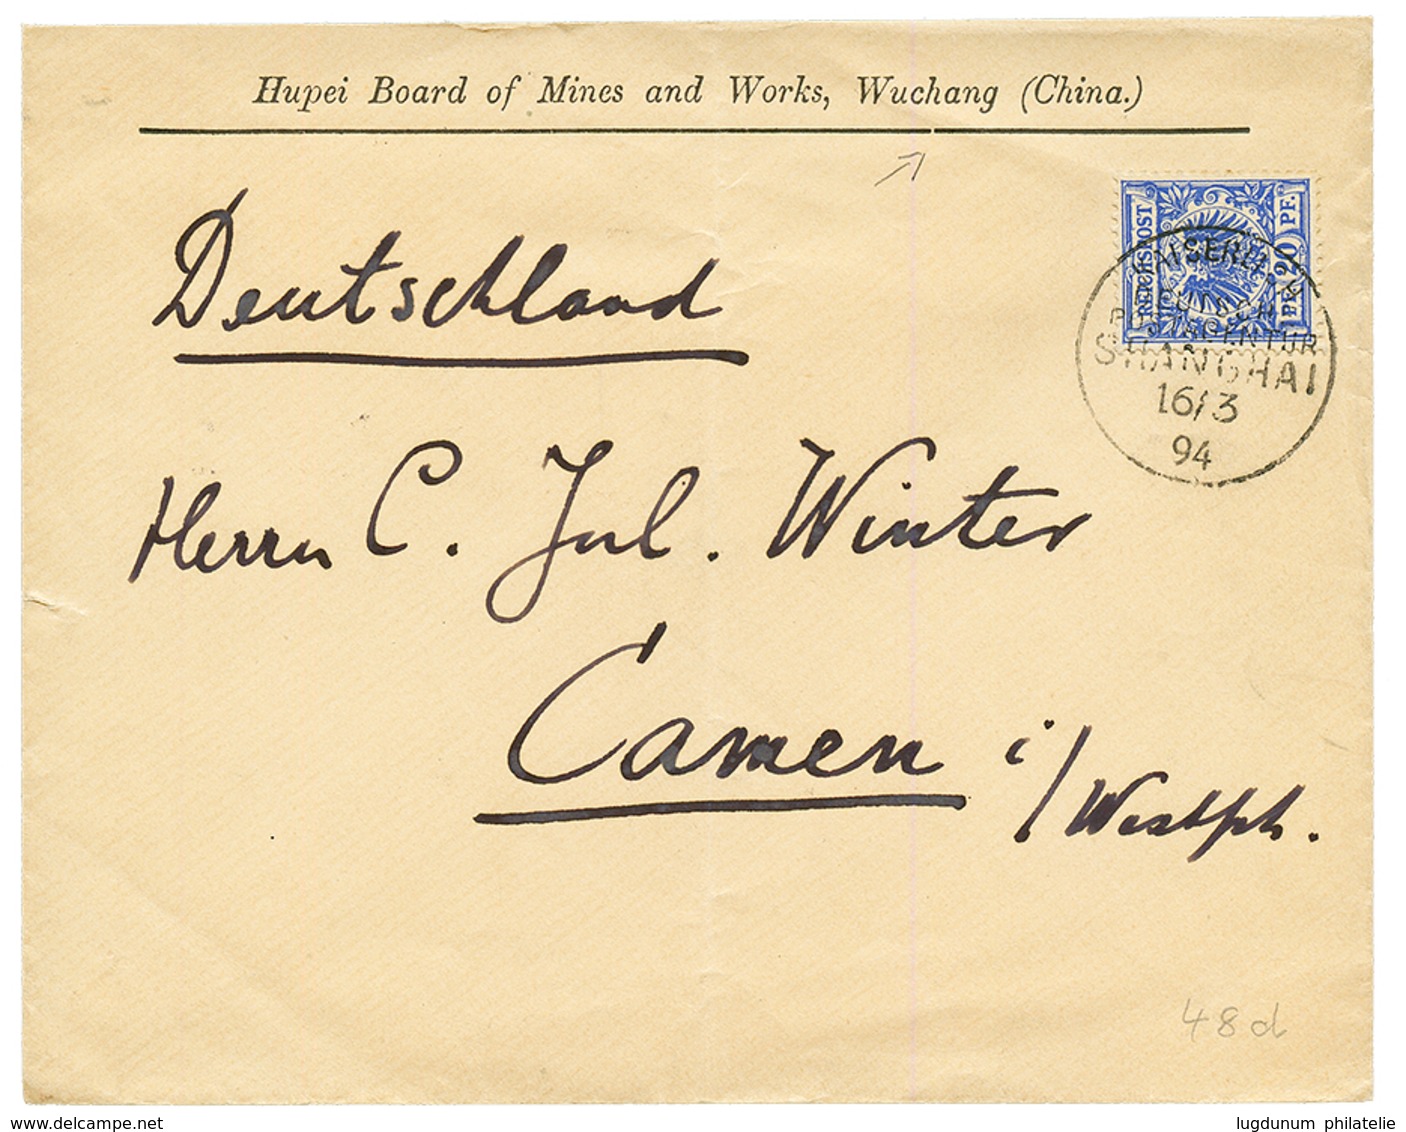 Hupei Board of Mines and Works, Wuchang (China.)
Deutschland
REICHSPOST
20 PF.
KAISERL.
DEUTSCHE
POSTAGENTUR
SHANGHAI
16/3
94
Herrn C. Jul. Winter
Camen i/Westph.
48d
www.delcampe.net
lugdunum philatelie